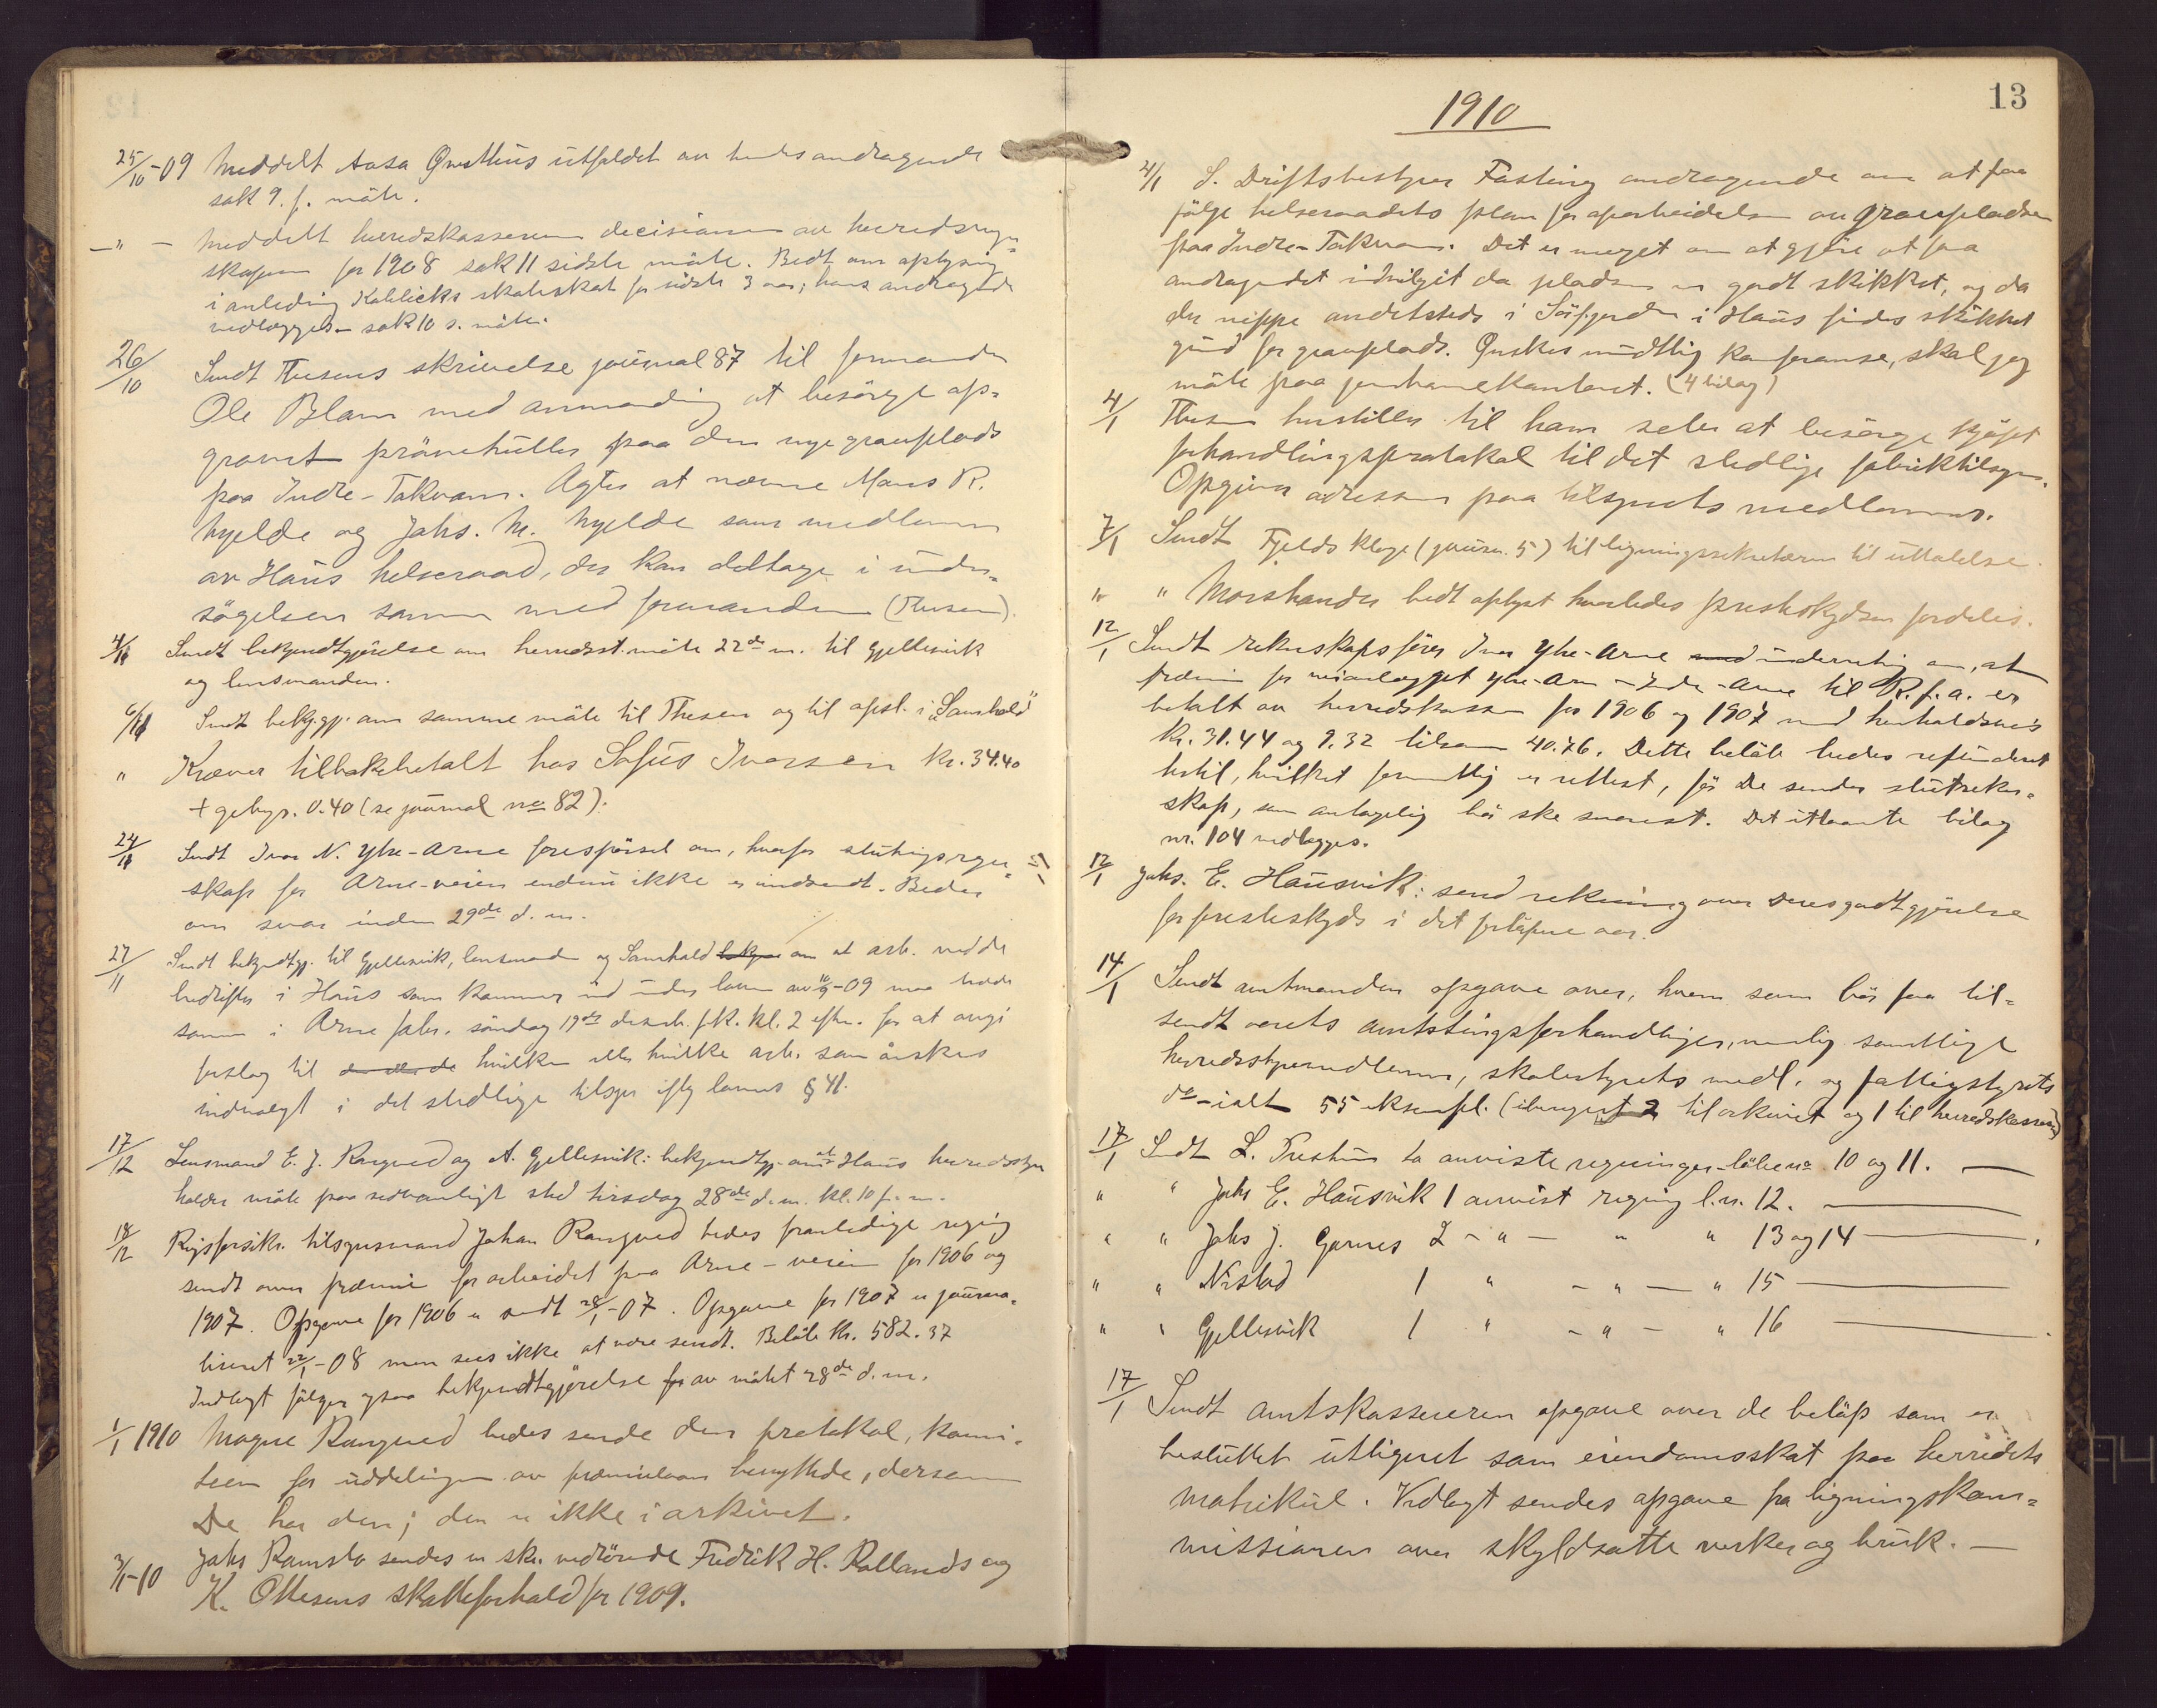 25/10-09 Meddelt Aasa Qvetthus utfaldet av hendes andragende
sak 9. f. möte.
-"- Meddelt herredskassereren decisionen av herredsregn-
skapen for 1908 sak 11 sidste möte. Bedt om oplysning
i anledning Kahlicks skoleskat for sidste 3 aar; hans andragende
vedlægges - sak 10 s. möte.
26/10 Sendt Thesens skrivelse journal 87 til formanden
Ole Blom med anmodning at besörge op-
gravet prövehuller paa den nye gravplads
paa Indre-Takvam. Agter at nævne Mons R.
Mjelde og Johs. M. Mjelde som medlemmer
av Haus helseraad, der kan deltage i under-
sögelsen sammen med formanden (Thesen).
4/11 Sendt bekjendtgjörelse om herredsst. möte 22de m. til Gjellesvik
og lensmanden.
6/11 Sendt bekj.gj. om samme möte til Thesen og til opsl. i "Samhold"
" Kræver tilbakebetalt hos Sofus Ivarsen kr. 34.40
+ gebyr. 0.40 (se journal no 82).
24/11 Sendt Ivar N. Ytre-Arne forespörsel om, hvorfor slutningsregn-
skap for Arne-veien endnu ikke er indsendt. Bedes
om svar inden 29de d. m.
27/11 Sendt bekjendtgj. til Gjellesvik, lensmanden og Samhold om at arb. ved de
bedrifter i Haus som kommer ind under loven av 10/9-09 maa möde
sammen i Arne fabr. söndag 19de desemb. fk. kl. 2 efterm. for at avgi
forslag til den eller de hvilken eller hvilke arb. som önskes
indvalgt i det stedlige tilsyn iflg lovens § 41.
17/12 Lensmand E. J. Rangved og A. Gjellesvik: bekjendtgj. om at Haus herredsstyre
holder möte paa sedvanligt sted tirsdag 28de d. m. kl. 10 f. m.
18/12 Rigsforsikr. tilsynsmand Johan Rangved bedes fremledige regning
sendt over præmie for arbeidet paa Arne-veien for 1906 og
1907. Opgave for 1906 er sendt 28/1-07. Opgave for 1907 er journa-
liseret 22/1-08 men sees ikke at være sendt. Belöb kr. 582.37
Indlagt fölger ogsaa bekjendtgjörelse av mötet 28de d. m.
1/1 1910 Magne Rangved bedes sende den protokol, komi-
teen for uddelingen av præmielaan benyttede, dersom
De har den; den er ikke i arkivet.
3/1-10 Johs Ramslo sendes en skr. vedrörende Fredrik H. Rollands og
K. Ottesens skatteforhold for 1909.
13
1910
4/1 S. Driftsbestyrer Fasting andragende om at faa
fölge helseraadets plan for oparbeidelsen av gravpladsen
paa Indre-Takvam. Det er meget om at gjöre at faa
andragendet indvilget da pladsen er godt skikket, og da
der neppe andetsteds i Sörfjorden i Haus findes skikket
grund for gravplads. Önskes mundtlig konferanse, skal jeg
möte paa jernbanekontoret. (4 bilag)
4/1 Thesen henstilles til ham selv at besörge kjöpt
forhandlingsprotokol til det stedlige fabriktilsyn.
Opgiver adressen paa tilsynets medlemmer.
7/1 Sendt Fjelds klage (journ. 5) til ligningssekretæren til uttalelse.
" " Morshander bedt oplyst hvorledes presteskydsen fordeles.
12/1 Sendt rekneskapsförer Ivar Ytre-Arne underretning om, at
præmie for veianlægget Ytre-Arne - Indre-Arne til R.f.a. er
betalt av herredskassen for 1906 og 1907 med henholdsvis
kr. 31.44 og 9.32 tilsam 40.76. Dette belöb bedes refunderet
hertil, hvilket formentlig er rettest, för De sender slutrekne-
skap, som antagelig bör ske snarest. Det utlaante bilag
nr. 104 vedlægges.
12/1 Johs. E. Hausvik: send rekning over Deres godtgjörelse
for presteskyds i det forlöpne aar.
14/1 Sendt amtmanden opgave over, hvem som bör faa til-
sendt aarets amtstingsforhandlinger, nemlig samtlige
herredsstyremedlemmer, skolestyrets medl. og fattigstyrets
do - ialt 55 eksempl. (iberegnet 2 til arkivet og 1 til herredskassereren)
17/1 Sendt L. Presthus to anviste regninger - löbeno 10 og 11. —
" " Johs E. Hausvik 1 anvist regning l.n. 12. —
" " Johs J. Garnes 2 - " - " " 13 og 14 —
" " Nistad 1 " - " - " 15 —
" " Gjellesvik 1 " - " - " 16 —
17/1 Sendt amtskassereren opgave over de belöp som er
besluttet utlignet som eiendomsskat paa herredets
matrikul. Vedlagt sendes opgave fra ligningskom-
missionen over skyldsatte verker og bruk. —